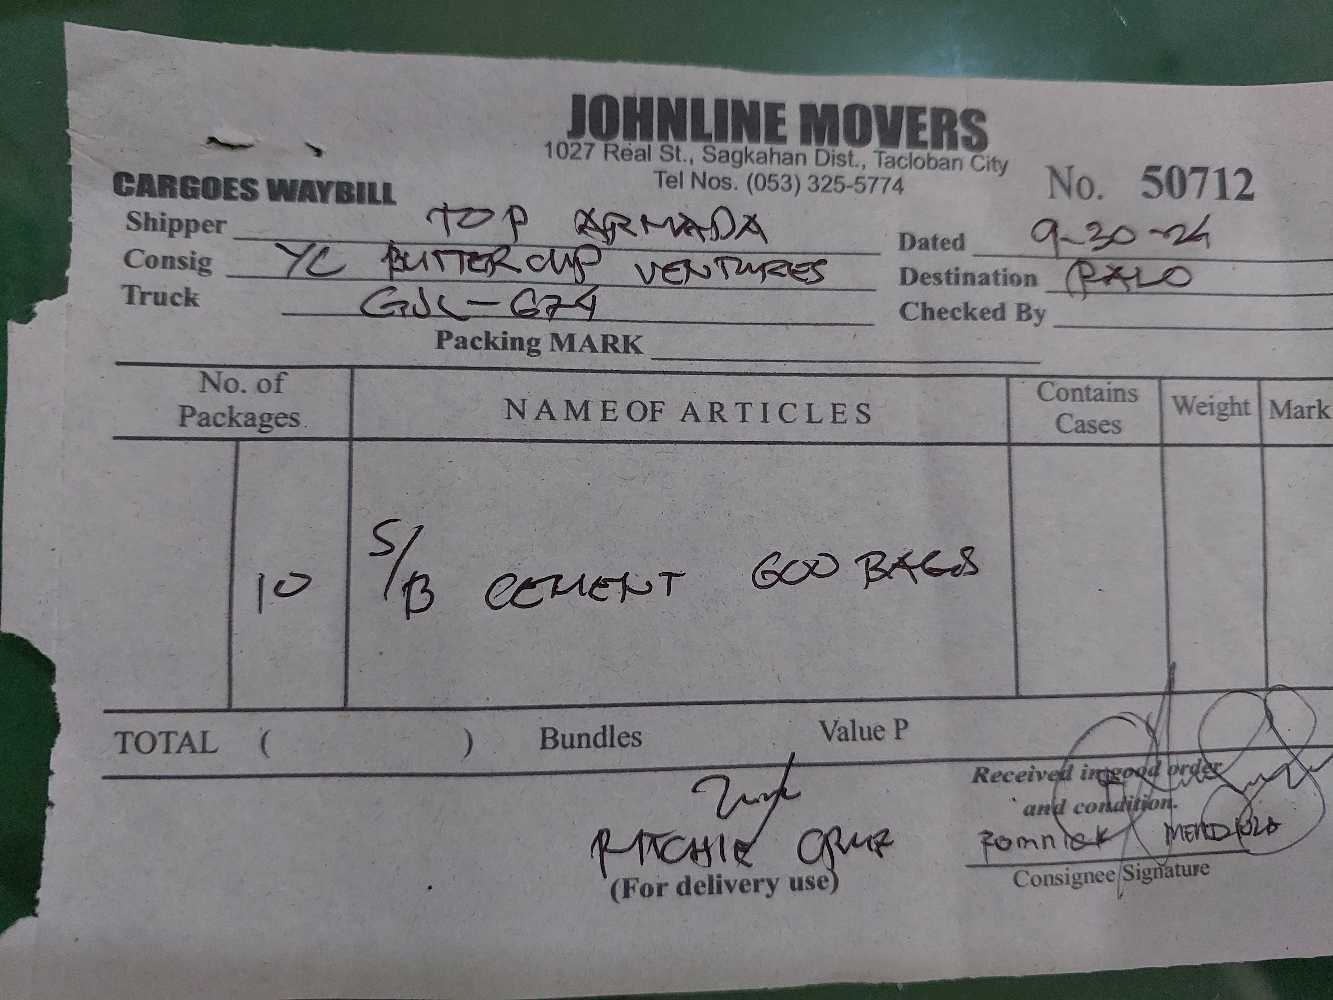 JOHNLINE MOVERS
1027 Real St., Sagkahan Dist., Tacloban City
Tel Nos. (053) 325-5774
No. 50712
CARGOES WAYBILL
Shipper TOP ARMADA
Dated 9-30-24
Consig YC BUTTERCUP VENTURES
Destination PALO
Truck GJL-674
Checked By
Packing MARK
No. of Packages NAME OF ARTICLES Contains Cases Weight Mark
10 S/B CEMENT 600 BAGS
TOTAL ( ) Bundles Value P
Received in good order
and condition.
RITCHIE CRUZ
Romnick MENDIOLA
(For delivery use)
Consignee/Signature